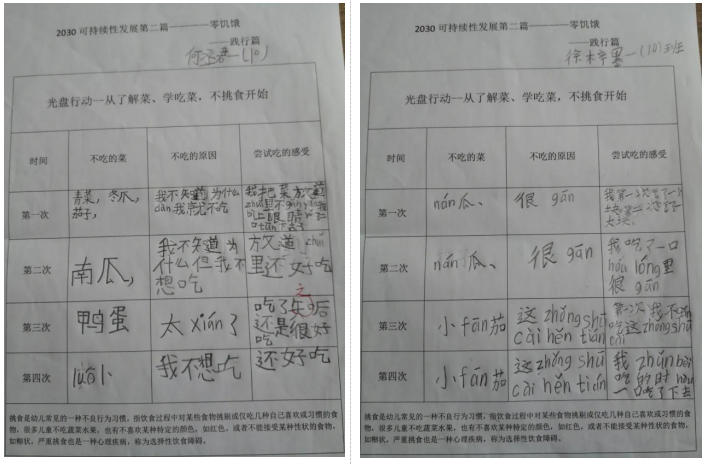 2030可持续性发展第二篇————零饥饿
——践行篇
一(10)
光盘行动—从了解菜、学吃菜，不挑食开始
时间
不吃的菜
不吃的原因
尝试吃的感受
第一次
青菜，冬瓜，
茄子，
我不知道为什么
我就是不吃
第二次
南瓜，
我不知道为
什么但我不
想吃
放道zuǐ
里还好吃
第三次
鸭蛋
太xián了
吃了之后
还是很好
吃
第四次
我不想吃
还好吃
挑食是幼儿常见的一种不良行为习惯，指饮食过程中对某些食物挑剔或仅吃几种自己喜欢或习惯的食
物，很多儿童不吃蔬菜水果，也有不喜欢某种特定的颜色，如红色，或者不能接受某种性状的食物，
如糊状，严重挑食也是一种心理疾病，称为选择性饮食障碍。
2030可持续性发展第二篇————零饥饿
——践行篇
一(10)班
光盘行动—从了解菜、学吃菜，不挑食开始
时间
不吃的菜
不吃的原因
尝试吃的感受
第一次
nán瓜、
很 gān
第二次
nán瓜、
很 gān
我吃了一口
hóu lóng里
很 gān
第三次
小fān茄
这zhǒng shū
cài hěn tián
第四次
小fān茄
这zhǒng shū
cài hěn tián
我 zhǔn bèi
吃的时 hou
一口吃了下去
挑食是幼儿常见的一种不良行为习惯，指饮食过程中对某些食物挑剔或仅吃几种自己喜欢或习惯的食
物，很多儿童不吃蔬菜水果，也有不喜欢某种特定的颜色，如红色，或者不能接受某种性状的食物，
如糊状，严重挑食也是一种心理疾病，称为选择性饮食障碍。